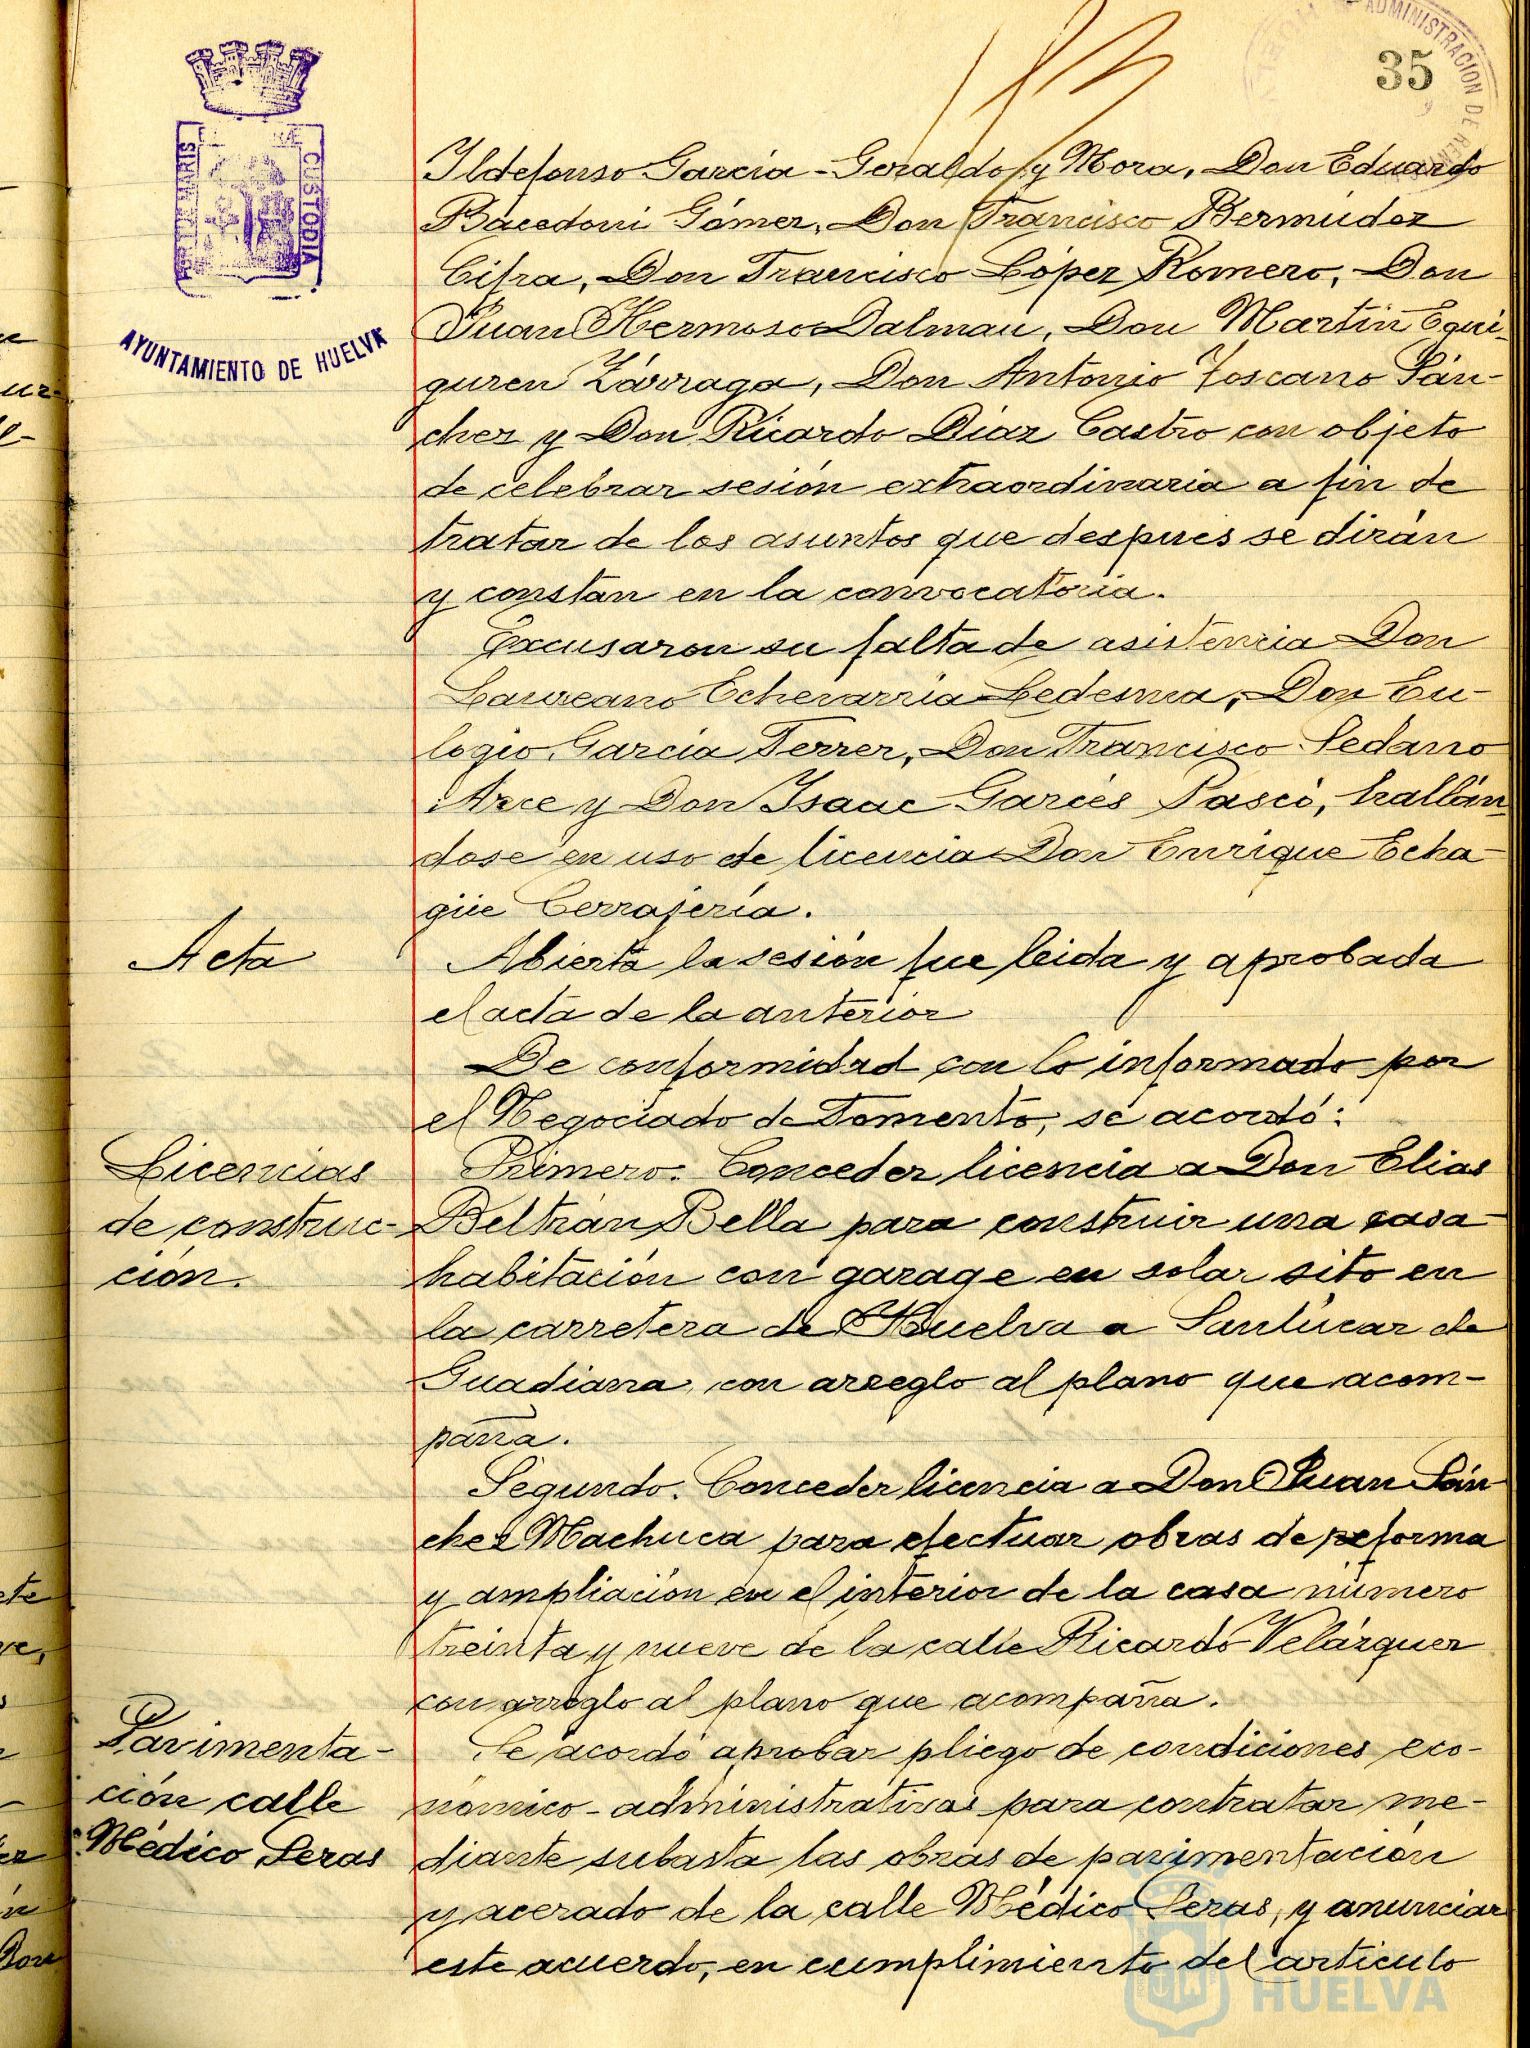 35
ADMINISTRACION DE
PORTUS MARIS
CUSTODIA
AYUNTAMIENTO DE HUELVA
Ildefonso García-Geraldo y Mora, Don Eduardo
Bacedoni Gómez, Don Francisco Bermúdez
Cifra, Don Francisco López Romero, Don
Juan Hermoso Dalmau, Don Martín Egui-
guren Zárraga, Don Antonio Toscano Sán-
chez y Don Ricardo Díaz Castro con objeto
de celebrar sesión extraordinaria a fin de
tratar de los asuntos que despues se dirán
y constan en la convocatoria.
Excusaron su falta de asistencia Don
Laureano Echevarría Ledesma, Don Eu-
logio García Ferrer, Don Francisco Sedano
Arce y Don Isaac Garcés Pascó, hallán-
dose en uso de licencia Don Enrique Echa-
güe Cerrajería.
Acta
Abierta la sesión fue leida y aprobada
el acta de la anterior
De conformidad con lo informado por
el Negociado de Fomento, se acordó:
Licencias
de construc-
ción.
Primero. Conceder licencia a Don Elias
Beltrán Bella para construir una casa
habitación con garage en solar sito en
la carretera de Huelva a Sanlúcar de
Guadiana, con arreglo al plano que acom-
paña.
Segundo. Conceder licencia a Don Juan Sán-
chez Machuca para efectuar obras de reforma
y ampliación en el interior de la casa número
treinta y nueve de la calle Ricardo Velázquez
con arreglo al plano que acompaña.
Pavimenta-
ción calle
Médico Seras
Se acordó aprobar pliego de condiciones eco-
nómico-administrativas para contratar me-
diante subasta las obras de pavimentación
y acerado de la calle Médico Seras, y anunciar
este acuerdo, en cumplimiento del articulo
HUELVA